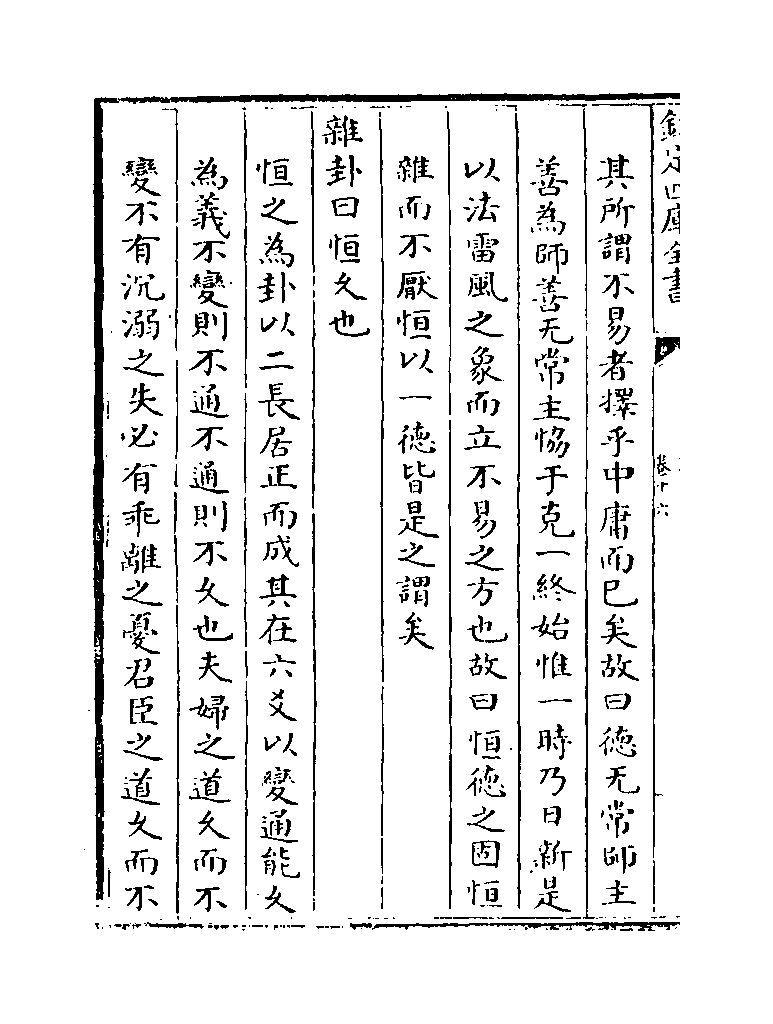 欽定四庫全書
卷十六
其所謂不易者擇乎中庸而已矣故曰德无常師主
善為師善无常主恊于克一終始惟一時乃日新是
以法雷風之象而立不易之方也故曰恒德之固恒
雜而不厭恒以一德皆是之謂矣
雜卦曰恒久也
恒之為卦以二長居正而成其在六爻以變通能久
為義不變則不通不通則不久也夫婦之道久而不
變不有沉溺之失必有乖離之憂君臣之道久而不